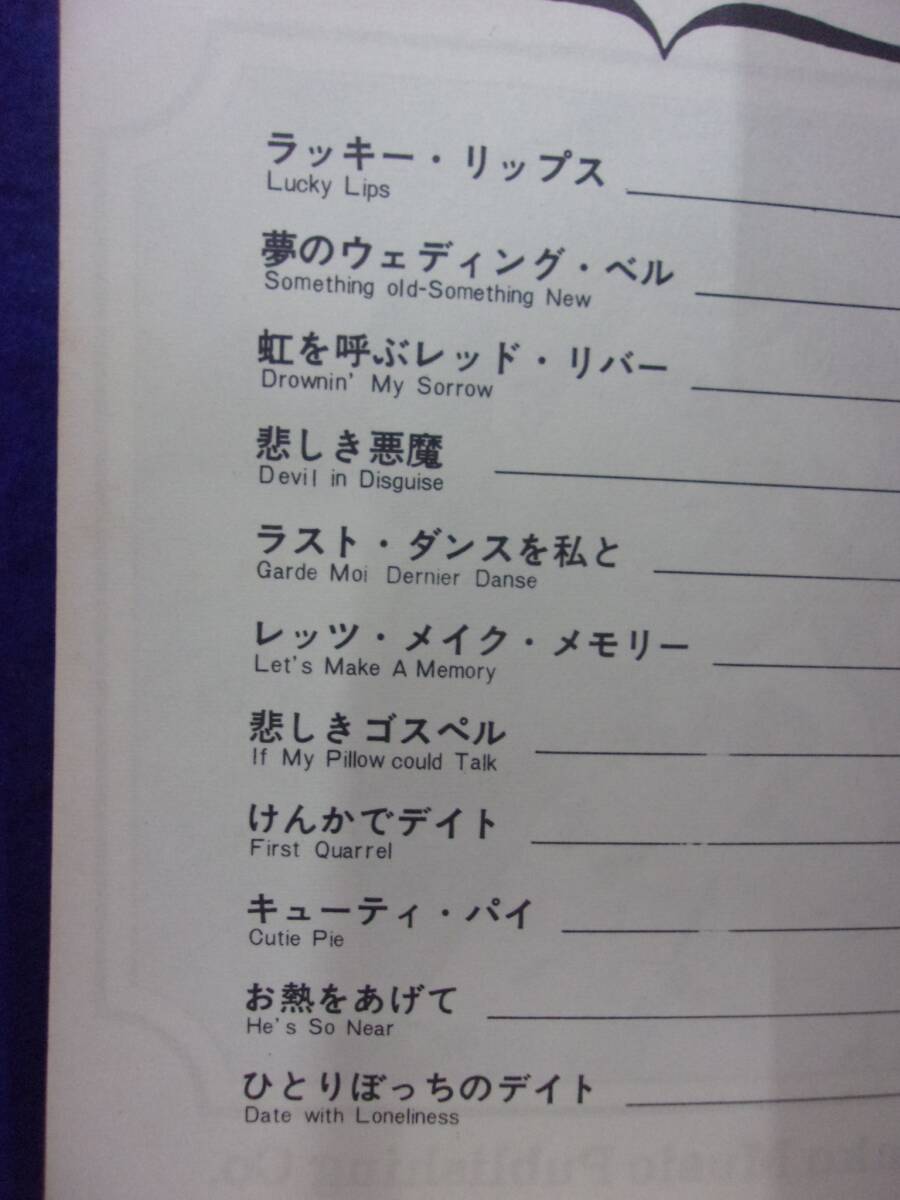 ラッキー・リップス
Lucky Lips
夢のウェディング・ベル
Something old-Something New
虹を呼ぶレッド・リバー
Drownin' My Sorrow
悲しき悪魔
Devil in Disguise
ラスト・ダンスを私と
Garde Moi Dernier Danse
レッツ・メイク・メモリー
Let's Make A Memory
悲しきゴスペル
If My Pillow could Talk
けんかでデイト
First Quarrel
キューティ・パイ
Cutie Pie
お熱をあげて
He's So Near
ひとりぼっちのデイト
Date with Loneliness
Music Publishing Co.